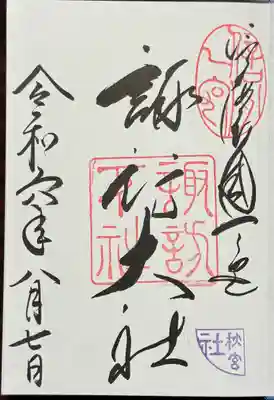 信濃国一之宮
諏訪大社
諏訪大社
秋宮
社
令和六年八月七日